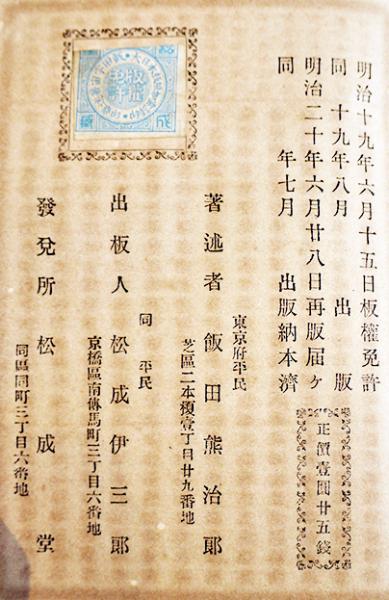 明治十九年六月十五日板權免許
同　十九年八月　出　版
明治二十年六月廿八日再版届ヶ
同　年七月　出版納本濟
正價壹圓廿五錢
東京府平民
著述者　飯田熊治郎
芝區二本榎壹丁目廿九番地
同　平民
出板人　松成伊三郎
京橋區南傳馬町三丁目六番地
發兌所　松成堂
同區同町三丁目六番地